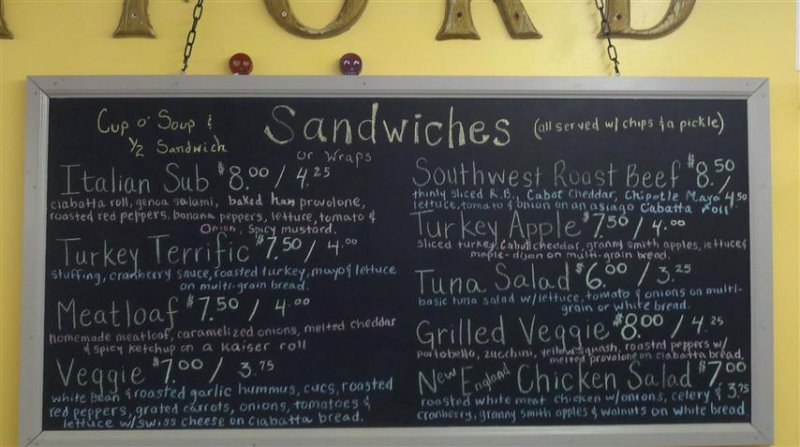 Cup o' Soup &
½ Sandwich
Sandwiches
or Wraps
(all served w/ chips & a pickle)
Italian Sub $8.00 / 4.25
ciabatta roll, genoa salami, baked ham provolone,
roasted red peppers, banana peppers, lettuce, tomato &
Onion, spicy mustard.
Turkey Terrific $7.50 / 4.00
stuffing, cranberry sauce, roasted turkey, mayo & lettuce
on multi-grain bread.
Meatloaf $7.50 / 4.00
homemade meatloaf, caramelized onions, melted cheddar
& spicy ketchup on a Kaiser roll
Veggie $7.00 / 3.75
white bean & roasted garlic hummus, cucs, roasted
red peppers, grated carrots, onions, tomatoes &
lettuce w/ swiss cheese on ciabatta bread.
Southwest Roast Beef $8.50 / 4.50
thinly sliced R.B., Cabot Cheddar, Chipotle Mayo
lettuce, tomato & onion on an asiago Ciabatta roll
Turkey Apple $7.50 / 4.00
sliced turkey, Cabot cheddar, granny smith apples, lettuce &
maple-dijon on multi-grain bread.
Tuna Salad $6.00 / 3.25
basic tuna salad w/ lettuce, tomato & onions on multi-
grain or white bread.
Grilled Veggie $8.00 / 4.25
portobello, zucchini, yellow squash, roasted peppers w/
melted provolone on ciabatta bread.
New England Chicken Salad $7.00 & 3.75
roasted white meat chicken w/ onions, celery &
cranberry, granny smith apples & walnuts on white bread